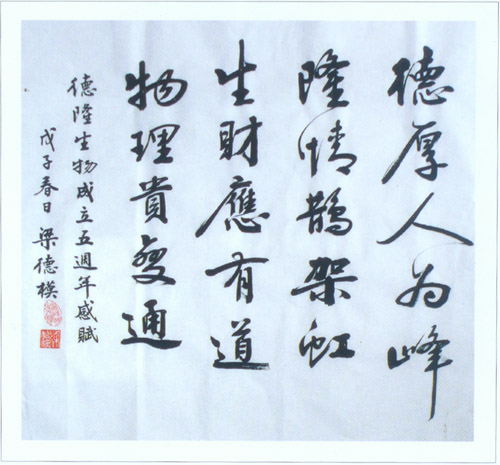 德厚人为峰
隆情鵲架虹
生財應有道
物理貴變通
德隆生物成立五週年感賦
戊子春日 梁德模